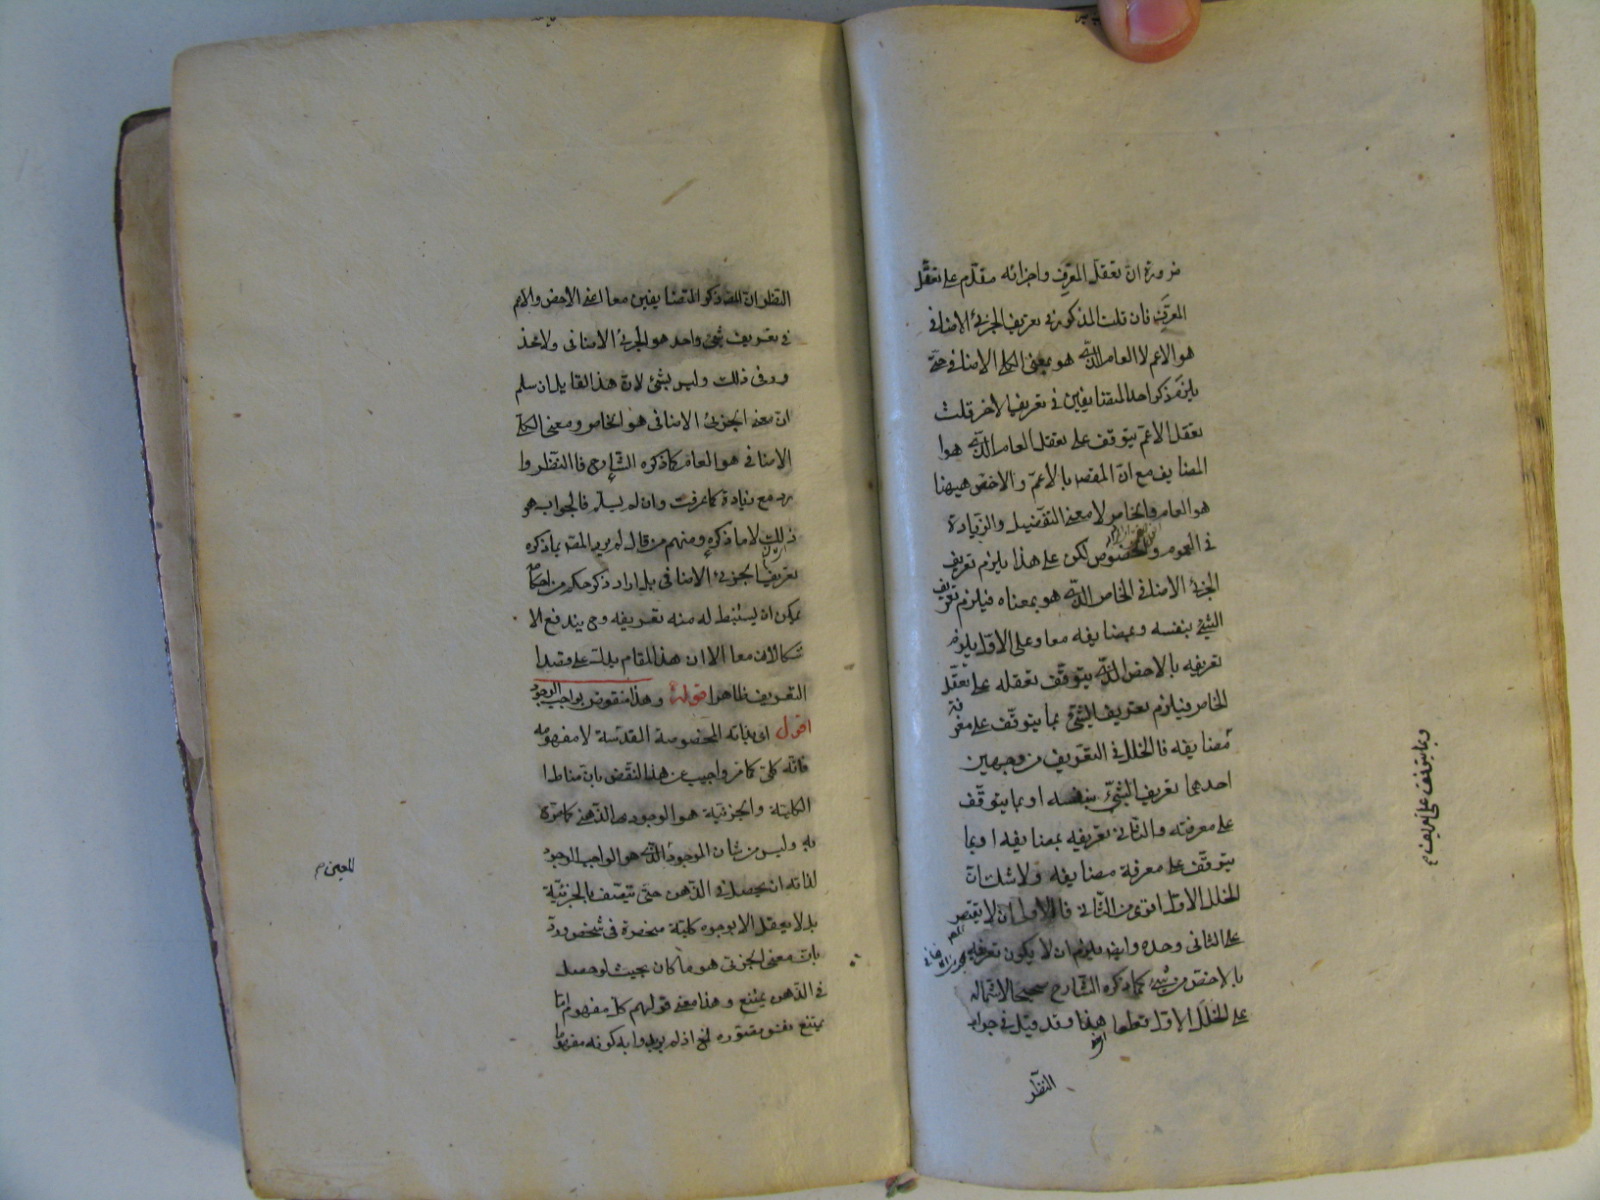 ضرورة ان تعقل المعرِّف واجزائه مقدّم على تعقّل
المعرَّف فان قلت المذكور في تعريف الجزئي الاضافي
هو الاعم لا العام الذي هو بمعنى الكلي الاضافي حتى
يلزم ذكر احد المتضايفين في تعريف الاخر قلت
تعقل الاعمّ يتوقف على تعقل العام الذي هوا
المضايف مع انّ المقصود بالاعمّ والاخص هيهنا
هو العام والخاص لا معنى التفضيل والزيادة
في العموم والخصوص لكن على هذا يلزم تعريف
الجزئي الاضافي الخاص الذي هو بمعناه فيلزم تعريف
الشيء بنفسه وبمضايفه معا وعلى الاول يلزم
تعريفه بالاخص الذي يتوقف تعقله على تعقّل
الخاص فيلزم تعريف الشيء بما يتوقّف على معرفة
مضايفه فالخلل في التعريف من وجهين
احدهما تعريف الشيء بنفسه او بما يتوقّف
على معرفته والثاني تعريفه بمضايفه او بما
يتوقّف على معرفة مضايفه ولا شك ان
الخلل الاول اقوى من الثاني فالاولى ان لا يقتصر
على الثاني وحده وايضا يلزم ان لا يكون تعريفه
بالاخص من شيء كما ذكره الشارح صحيحا لاشتماله
على الخلل الاول قطعا وقد قيل في جواب
النظر
وبما يتوقف على تعريفه
النظر ان المص ذكر المتضايفين معا اعني الاخص والاعم
في تعريف شيء واحد هو الجزئي الاضافي ولا محذ
ور في ذلك وليس بشيء لان هذا القايل ان سلم
ان معنى الجزئي الاضافي هو الخاص ومعنى الكلي
الاضافي هو العام كما ذكره الشارح فالنظر وا
رد مع زيادة كما عرفت وان لم يسلم فالجواب هو
ذلك لا ما ذكره ومنهم من قال لم يرد المص بما ذكره
تعريف الجزئي الاضافي بل اراد ذكر حكم من احكامه
يمكن ان يستنبط له منه تعريفه وح يندفع الا
شكالان معا الا ان هذا المقام يدل على قصد ا
التعريف ظاهرا قوله وهذا منقوض بواجب الوجود
اقول اي بذاته المخصوصة المقدسة لا مفهومه
فانّه كليّ كما مر واجيب عن هذا النقض بان مناط ا
الكلية والجزئية هو الوجود الذهني كما مر
وليس من شان الموجود الذي هو الواجب الوجود
لذاته ان يحصل في الذهن حتى يتصف بالجزئيّة
بل لا يعقل الا بوجوه كليّة منحصرة في شخص ورد
بان معنى الجزئي هو ما كان بحيث لو حصل
في الذهن يمتنع وهذا معنى قولهم كل مفهوم اما
يمتنع نفس تصوره الخ اذ لم يريدوا به كونه مفهوما
المعين